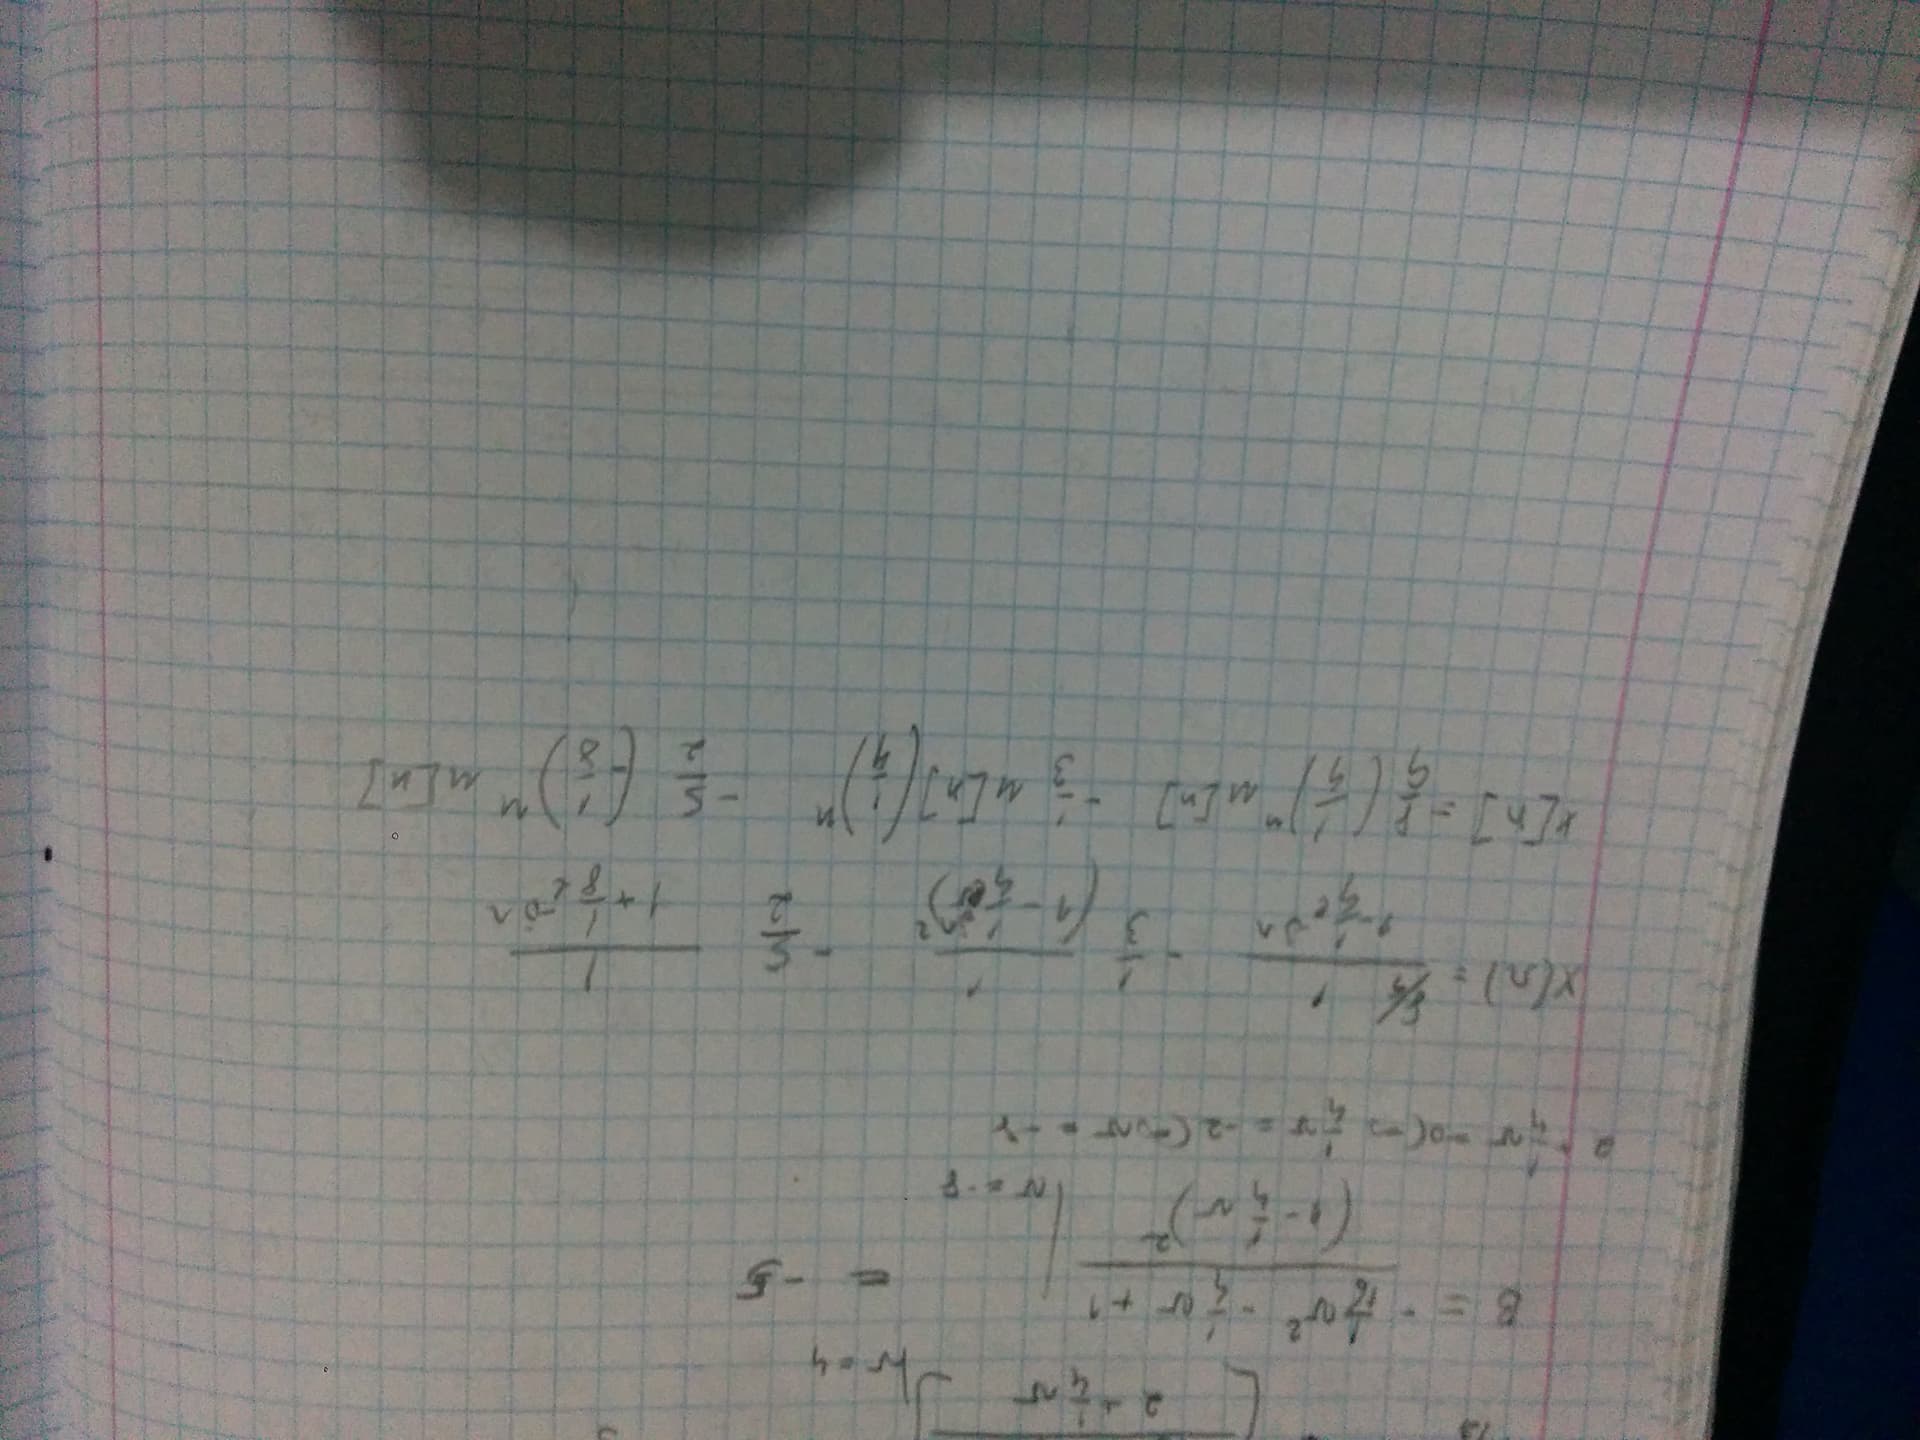 2 + 1/4 v v = 4
B = - 1/16 v² - 1/4 v + 1 / (1 - 1/4 v)² | v = -8 = -5
1/4 v = 0 (=) 1/4 v = -2 (=) v = -8
X(Ω) = 1 / 1 - 1/4 e^-jΩ - 1/3 1 / (1 - 1/4)² - 5/2 1 / 1 + 1/8 e^-jΩ
x[n] = 8/9 (1/4)^n u[n] - 1/3 u[n] (1/4)^n - 5/2 (-1/8)^n u[n]